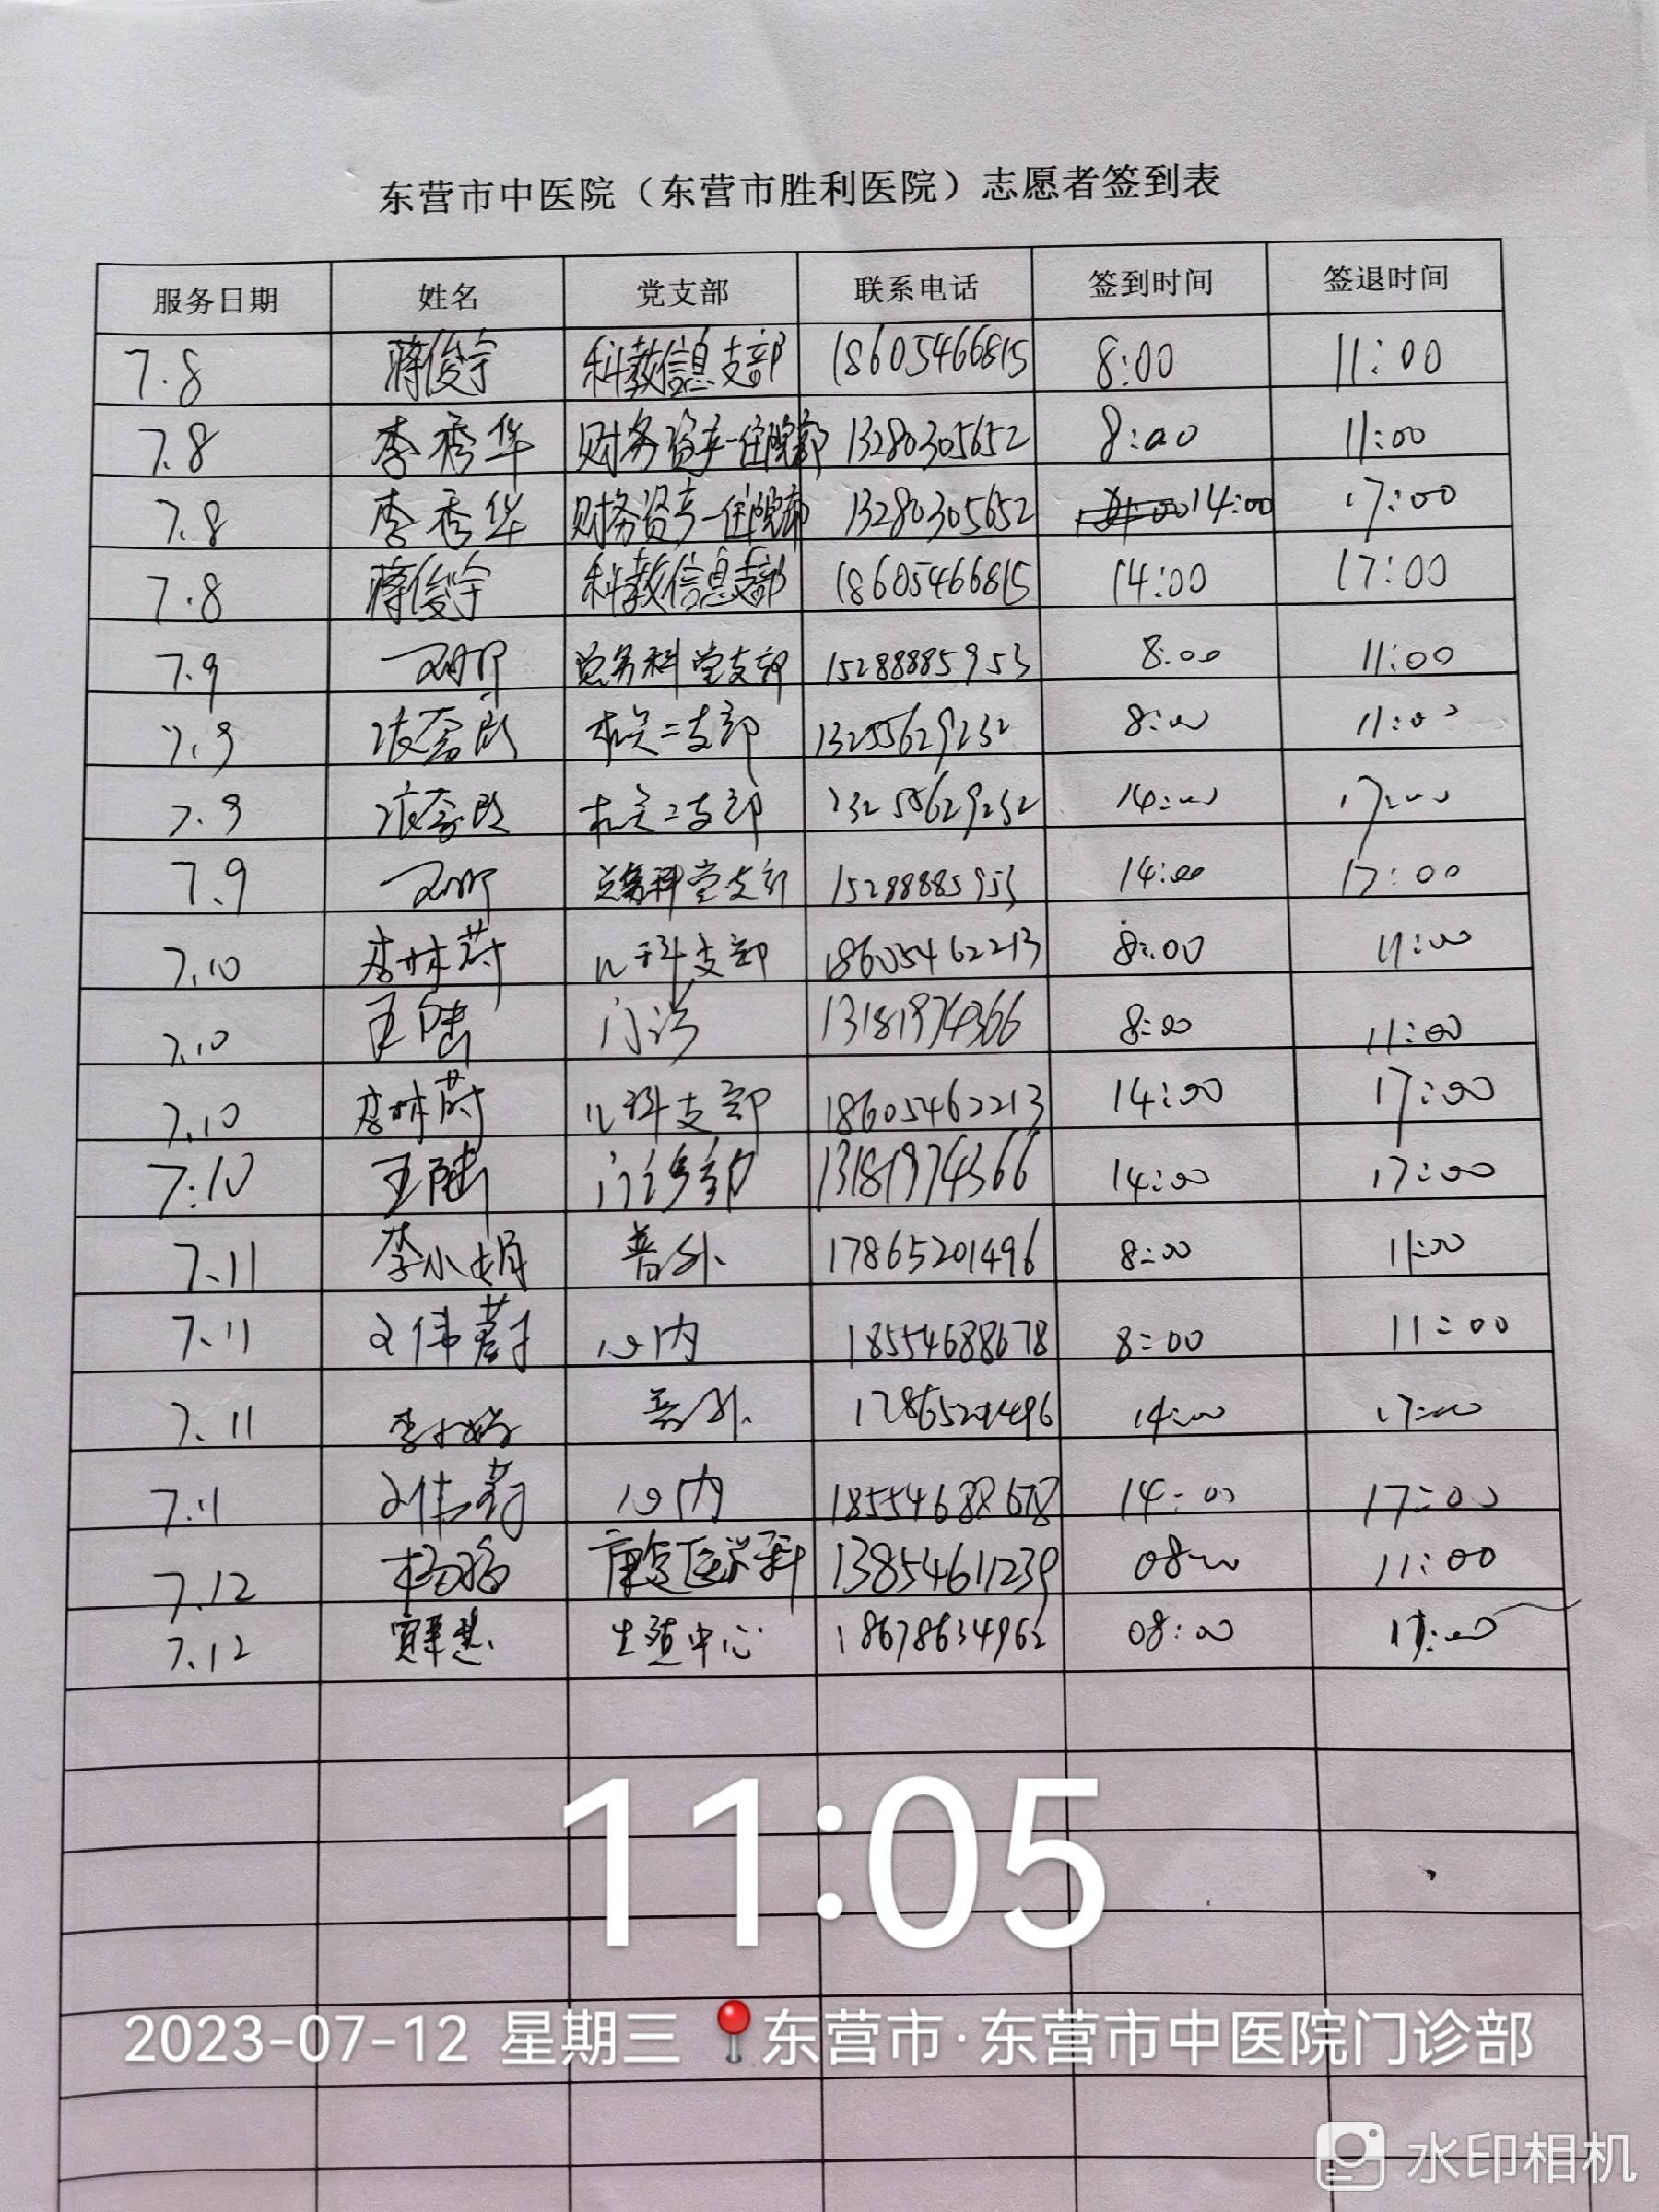 东营市中医院（东营市胜利医院）志愿者签到表
服务日期 姓名 党支部 联系电话 签到时间 签退时间
7.8 蒋俊宇 科教信息支部 18605466815 8:00 11:00
7.8 李秀华 财务资产-住院部 13280305652 8:00 11:00
7.8 李秀华 财务资产-住院部 13280305652 14:00 17:00
7.8 蒋俊宇 科教信息支部 18605466815 14:00 17:00
7.9 总务科党支部 15288885953 8:00 11:00
7.9 机关二支部 13255629232 8:00 11:00
7.9 机关二支部 13255629232 14:00 17:00
7.9 总务科党支部 15288885953 14:00 17:00
7.10 李林蔚 儿科支部 18605462213 8:00 11:00
7.10 王陆 门诊 13181974366 8:00 11:00
7.10 李林蔚 儿科支部 18605462213 14:00 17:00
7.10 王陆 门诊部 13181974366 14:00 17:00
7.11 李小娟 普外 17865201496 8:00 11:00
7.11 刘伟蔚 心内 18554688678 8:00 11:00
7.11 李小娟 普外 17865201496 14:00 17:00
7.11 刘伟蔚 心内 18554688678 14:00 17:00
7.12 康复医学科 13854611239 08:00 11:00
7.12 生殖中心 18678634962 08:00 11:00
11:05
2023-07-12 星期三 东营市·东营市中医院门诊部
水印相机